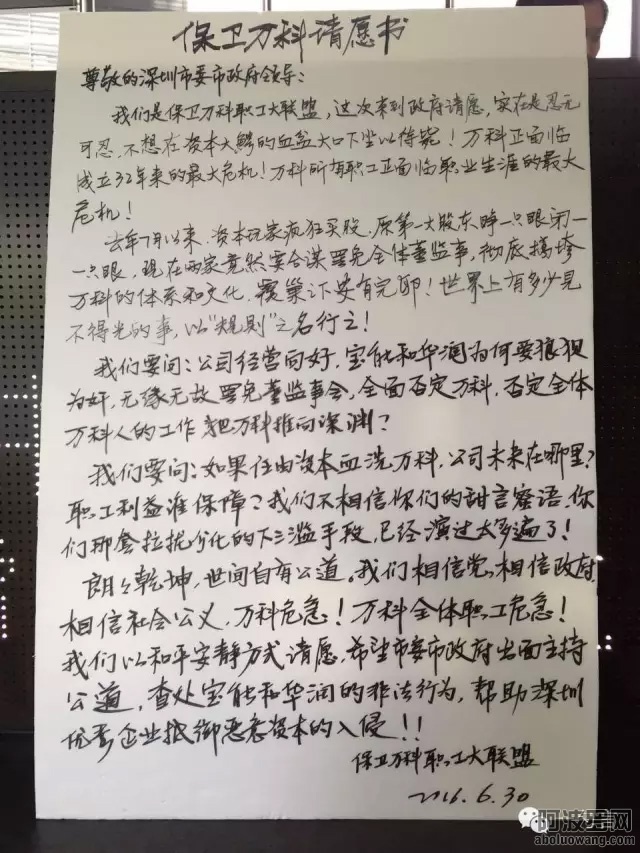 保卫万科请愿书
尊敬的深圳市委市政府领导：
我们是保卫万科职工大联盟，这次来到政府请愿，实在是忍无
可忍，不想在资本大鳄的血盆大口下坐以待毙！万科正面临
成立32年来的最大危机！万科所有职工正面临职业生涯的最大
危机！
去年7月以来，资本玩家疯狂买股，原第一大股东睁一只眼闭一
一只眼，现在两家竟然要合谋罢免全体董监事，彻底搞垮
万科的体系和文化，覆巢之下安有完卵！世界上有多少见
不得光的事，以“规则”之名行之！
我们要问：公司经营向好，宝能和华润为何要狼狈
为奸，无缘无故罢免董监事会，全面否定万科，否定全体
万科人的工作，把万科推向深渊？
我们要问：如果任由资本血洗万科，公司未来在哪里？
职工利益谁保障？我们不相信你们的甜言蜜语，你
们那套拉拢分化的下三滥手段，已经演过太多遍了！
朗々乾坤，世间自有公道。我们相信党、相信政府
相信社会公义，万科危急！万科全体职工危急！
我们以和平安静方式请愿，希望市委市政府出面主持
公道，查处宝能和华润的非法行为，帮助深圳
优秀企业抵御恶意资本的入侵！！
保卫万科职工大联盟
2016.6.30
阿波罗网
aboluowang.com